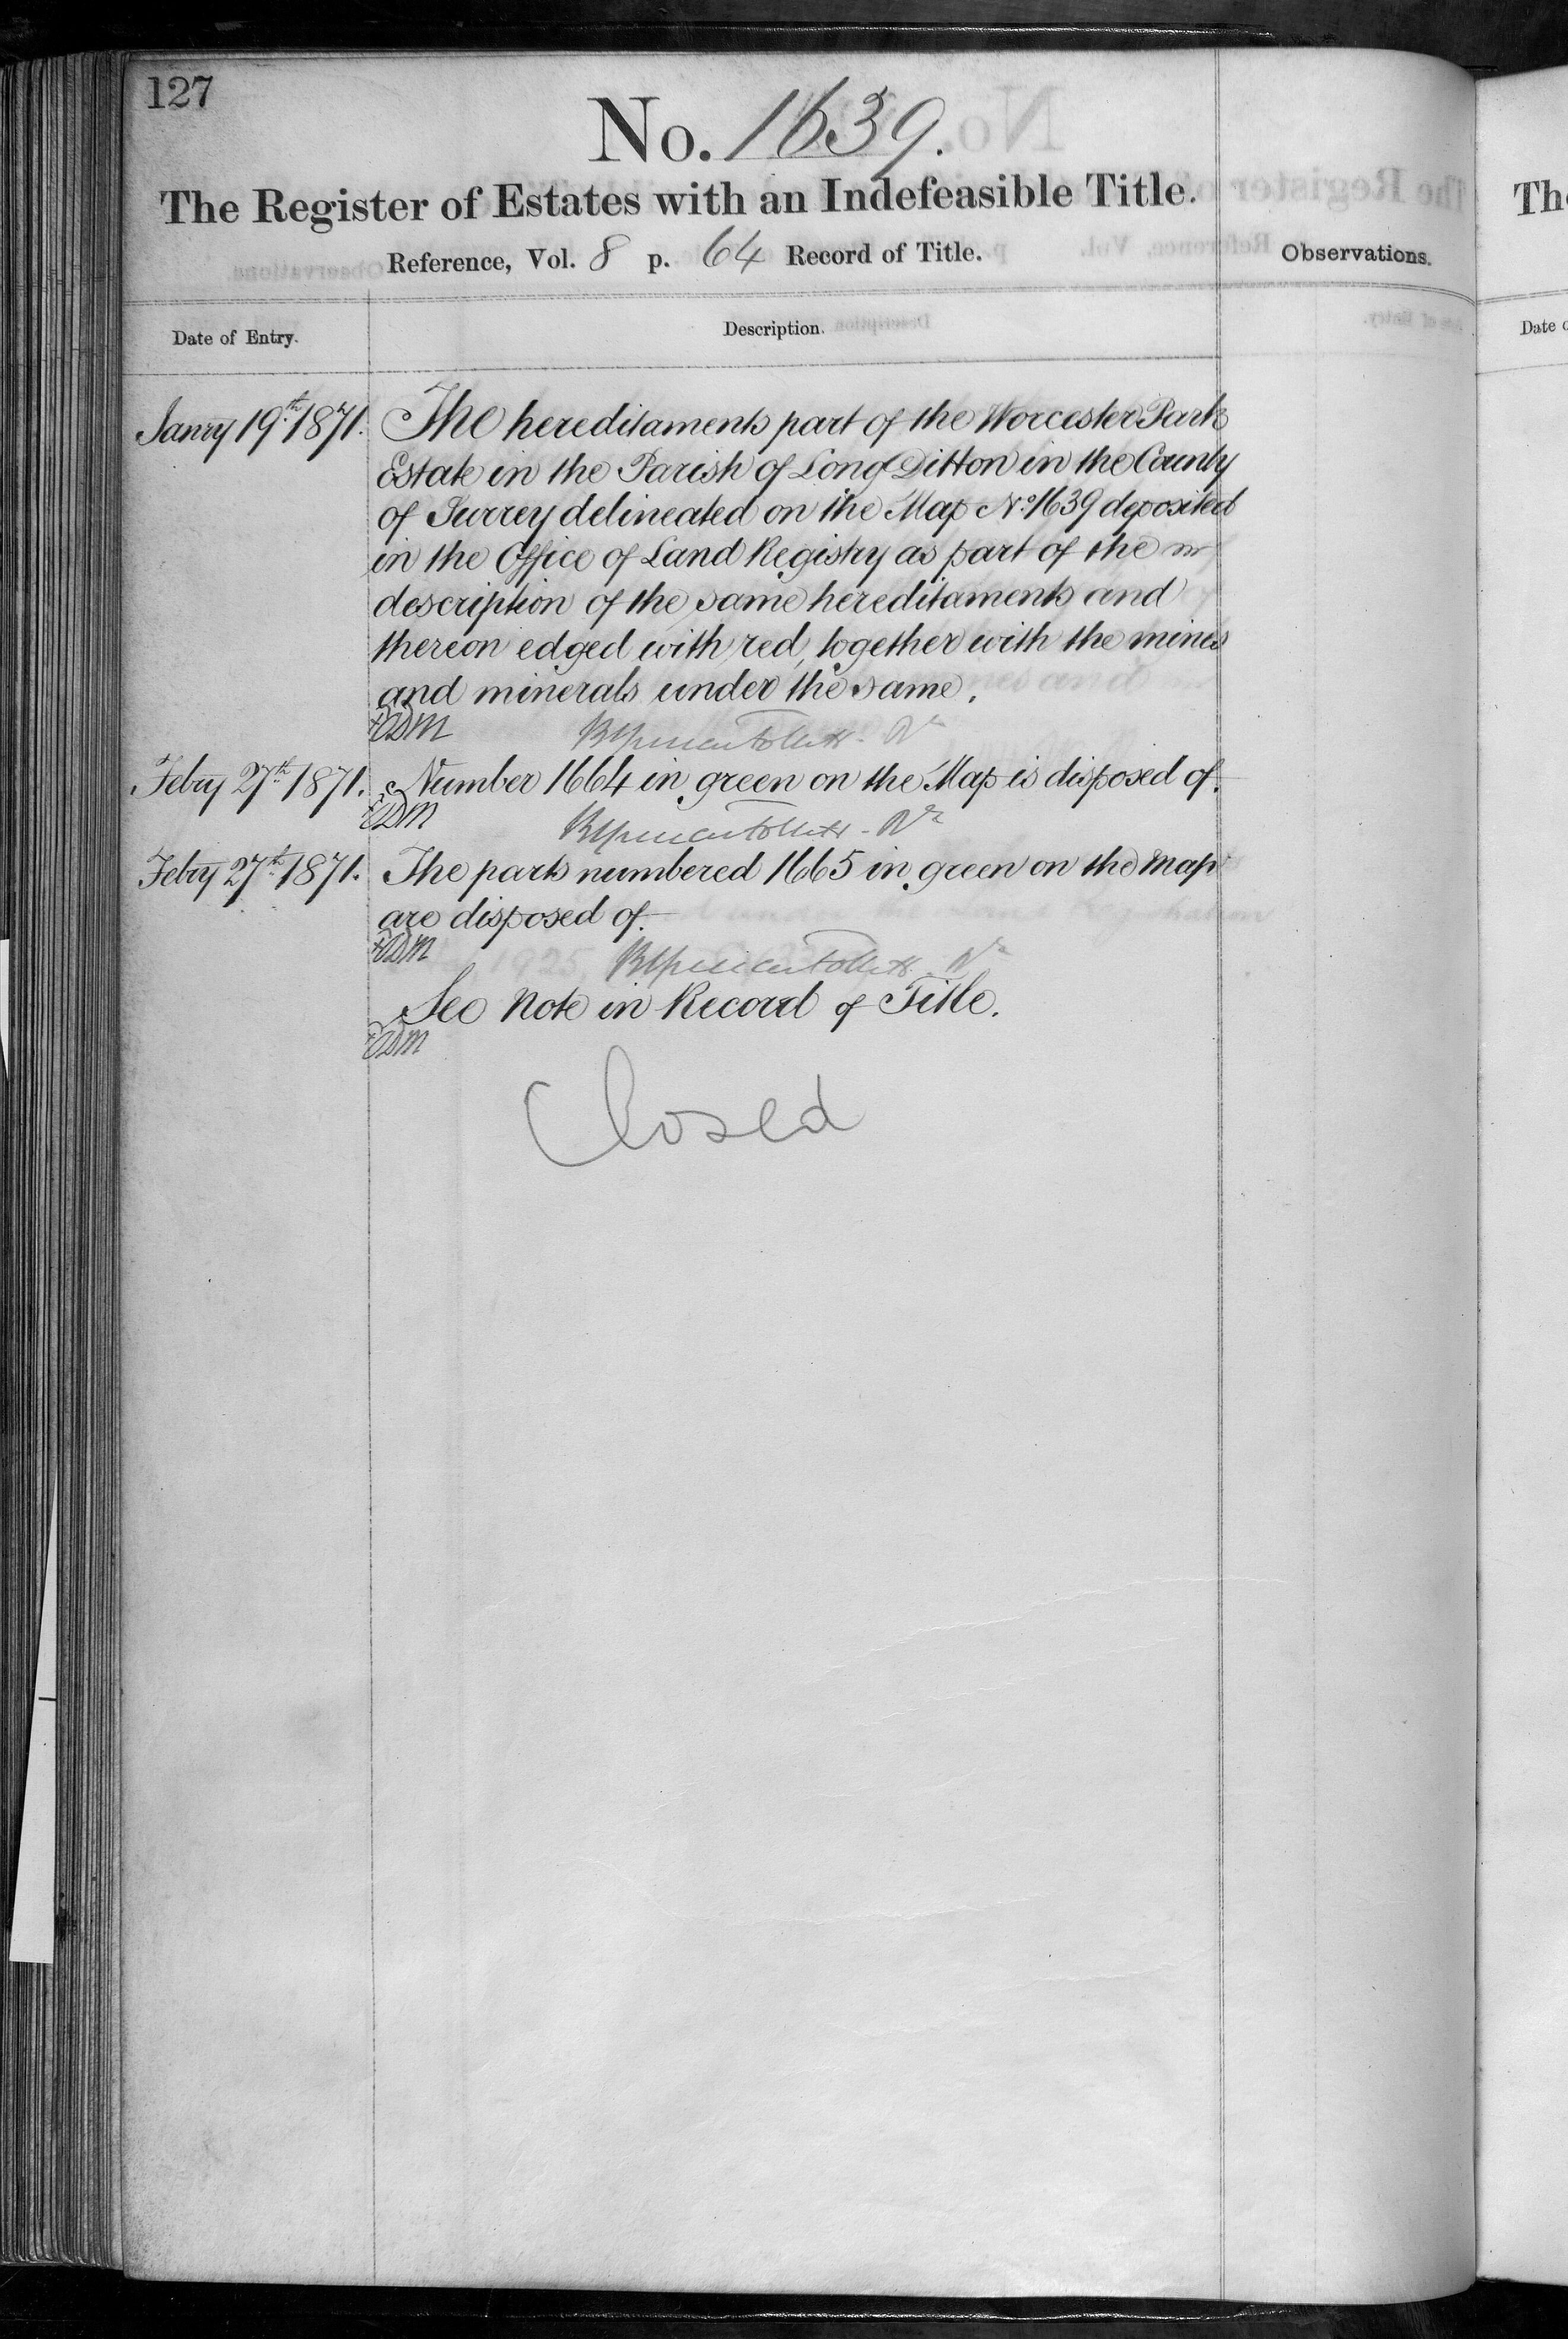 127
No. 1639.
The Register of Estates with an Indefeasible Title.
Reference, Vol. 8 p. 64 Record of Title.
Observations.
Date of Entry.
Description.
Janry 19th 1871. The hereditaments part of the Worcester Park
Estate in the Parish of Long Ditton in the County
of Surrey delineated on the Map No. 1639 deposited
in the Office of Land Registry as part of the
description of the same hereditaments and
thereon edged with red, together with the mines
and minerals under the same.
Febry 27th 1871. Number 1664 in green on the Map is disposed of.
Febry 27th 1871. The parts numbered 1665 in green on the map
are disposed of.
See Note in Record of Title.
Closed
The
Date